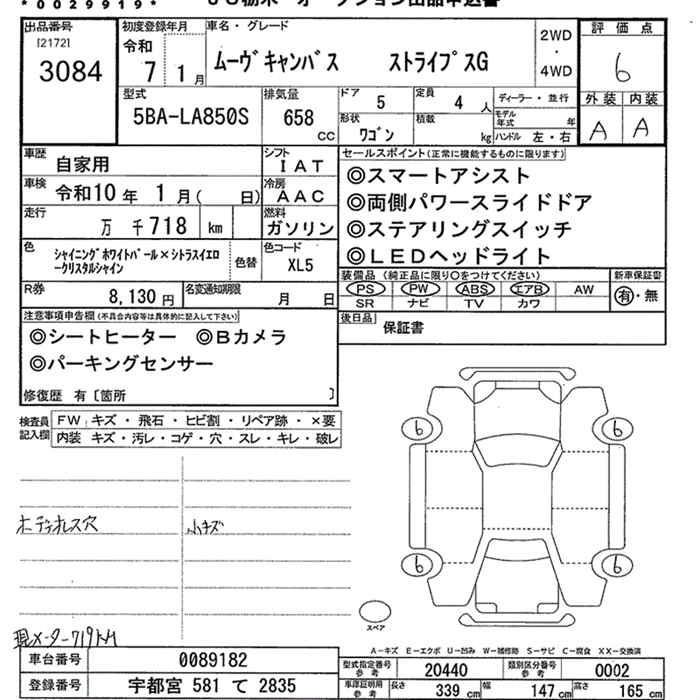 *0029919*
出品番号
[2172]
3084
初度登録年月
令和
7 1月
車名・グレード
ムーヴキャンバス ストライプスG
2WD
・
4WD
評価点
6
外装 内装
A A
型式
5BA-LA850S
排気量
658
CC
ドア
5
定員
4 人
ディーラー・並行
形状
ワゴン
積載
kg
モデル年式 年
ハンドル 左・右
車歴
自家用
シフト
IAT
車検
令和10年 1月( 日)
冷房
AAC
走行
万 千718 km
燃料
ガソリン
色
シャイニングホワイトパール×シトラスイエロ
ークリスタルシャイン
色替
色コード
XL5
R券
8,130円
名変通知期限
月 日
セールスポイント(正常に機能するものに限ります)
◎スマートアシスト
◎両側パワースライドドア
◎ステアリングスイッチ
◎LEDヘッドライト
装備品 (純正品に限り○をつけてください)
PS PW ABS エアB AW
SR ナビ TV カワ
新車保証書
有・無
後日品
保証書
注意事項申告欄(不具合内容等は具体的に記入して下さい)
◎シートヒーター ◎Bカメラ
◎パーキングセンサー
修復歴 有〔箇所 〕
検査員
記入欄
FW キズ・飛石・ヒビ割・リペア跡・×要
内装 キズ・汚レ・コゲ・穴・スレ・キレ・破レ
小キズ
現メーター719KM
6
6
6
6
スペア
A-キズ E-エクボ U-凹み W-補修跡 S-サビ C-腐食 XX-交換済
車台番号
0089182
登録番号
宇都宮 581 て 2835
型式指定番号
参考
20440
類別区分番号
参考
0002
車庫証明用
参考
長さ 339 cm
幅 147 cm
高さ 165 cm